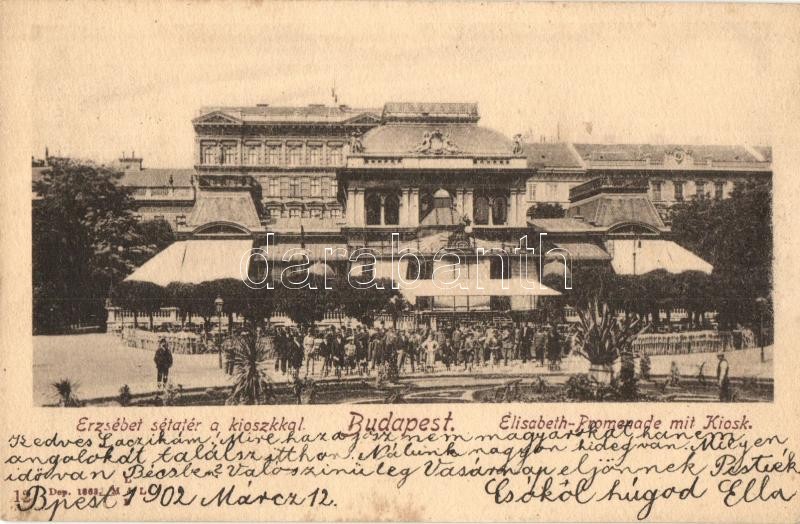 darabanth.com
Erzsébet sétatér a kioszkkal.
Budapest.
Elisabeth-Promenade mit Kiosk.
Kedves Laczikám! Mire haza jösz nem magyarokat hanem
angolokat találsz itthon. Nálunk nagyon hideg van. Milyen
idő van Bécsbe? Valószinüleg Vasárnap eljönnek Pestiék
12 Dep. 1863.
Bpest 1902 Márcz 12. Csókol húgod Ella